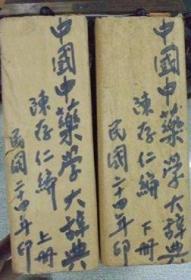 中國中藥學大辭典
陳存仁編
上册
民國二四年印
中國中藥學大辭典
陳存仁編
下册
民國二四年印